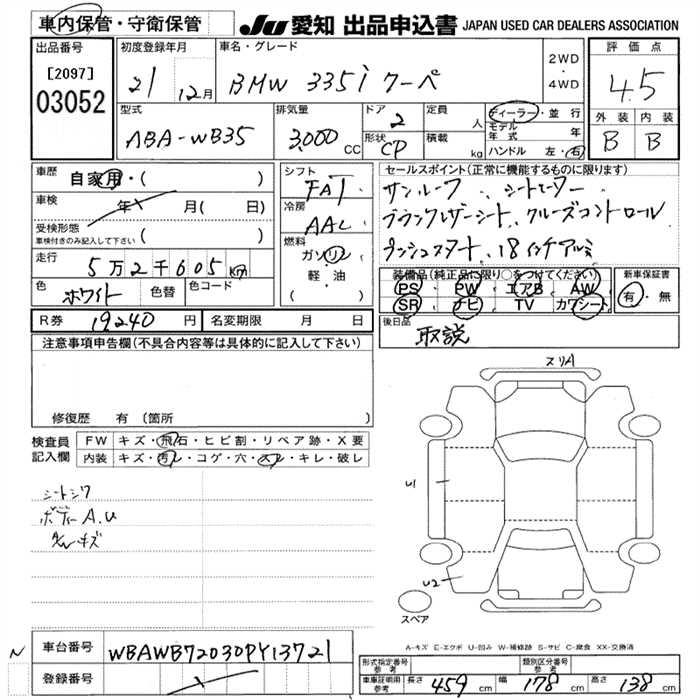 車内保管・守衛保管
JU 愛知 出品申込書 JAPAN USED CAR DEALERS ASSOCIATION
出品番号
[2097]
03052
初度登録年月
21 12月
車名・グレード
BMW 335i クーペ
2WD
・
4WD
評価点
4.5
外装 内装
B B
型式
ABA-WB35
排気量
3,000 CC
ドア 2
形状 CP
定員 人
積載 kg
ディーラー・並行
モデル年式 年
ハンドル 左・右
車歴 自家用・( )
車検 年 月( 日)
受検形態
車検付きのみ記入して下さい ( )
走行 5万2千605km
色 ホワイト 色替 色コード
R券 19240円 名変期限 月 日
シフト
FAT
冷房
AAC
燃料
ガソリン
軽・油
( )
セールスポイント(正常に機能するものに限ります)
サンルーフ、シートヒーター
ブラックレザーシート、クルーズコントロール
プッシュスタート、18インチアルミ
装備品(純正品に限り○をつけてください)
PS PW エアB AW
SR ナビ TV カワシート
新車保証書
有・無
後日品
取説
注意事項申告欄(不具合内容等は具体的に記入して下さい)
修復歴 有(箇所 )
検査員記入欄
FW キズ・飛石・ヒビ割・リペア跡・X要
内装 キズ・汚レ・コゲ・穴・スレ・キレ・破レ
シートシワ
ボディーA.U
キズ
スリA
U1
U2
スペア
A-キズ E-エクボ U-凹み W-補修跡 S-サビ C-腐食 XX-交換済
N
車台番号 WBAWB72030PY13721
登録番号
形式指定番号 参考
類別区分番号 参考
車庫証明用 参考 長さ 459cm 幅 178cm 高さ 138cm